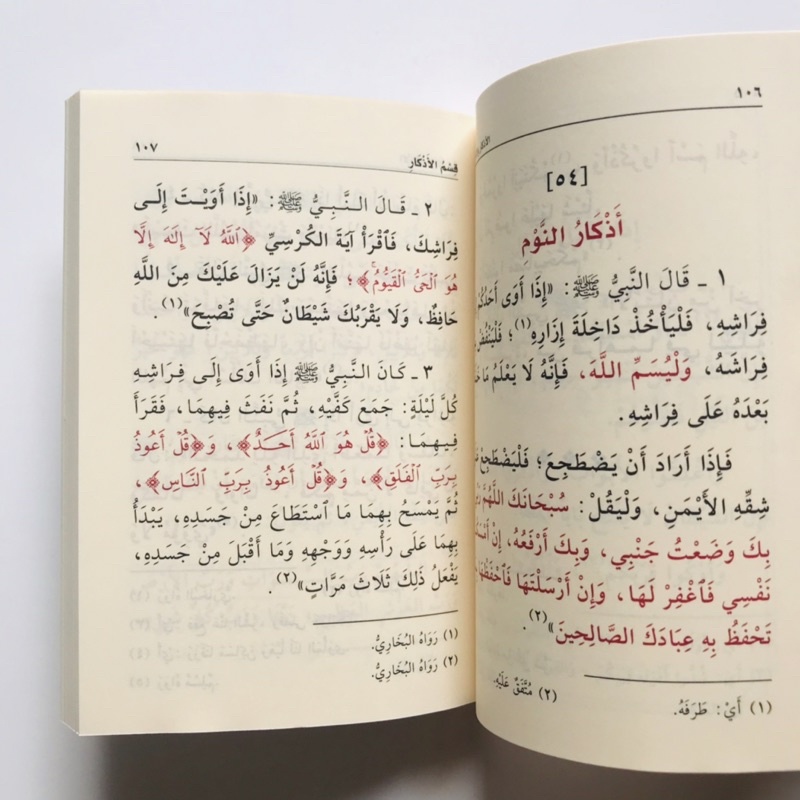 ١٠٦
[٥٤]
أَذْكَارُ النَّوْمِ
١ ـ قَالَ النَّبِيُّ ﷺ: «إِذَا أَوَى أَحَدُكُمْ
فِرَاشِهِ، فَلْيَأْخُذْ دَاخِلَةَ إِزَارِهِ(١)؛ فَلْيَنْفُضْ
فِرَاشَهُ، وَلْيُسَمِّ اللَّهَ، فَإِنَّهُ لَا يَعْلَمُ مَا
بَعْدَهُ عَلَى فِرَاشِهِ.
فَإِذَا أَرَادَ أَنْ يَضْطَجِعَ؛ فَلْيَضْطَجِعْ
شِقِّهِ الأَيْمَنِ، وَلْيَقُلْ: سُبْحَانَكَ اللَّهُمَّ
بِكَ وَضَعْتُ جَنْبِي، وَبِكَ أَرْفَعُهُ، إِنْ
نَفْسِي فَٱغْفِرْ لَهَا، وَإِنْ أَرْسَلْتَهَا فَٱحْفَظْهَا
تَحْفَظُ بِهِ عِبَادَكَ الصَّالِحِينَ»(٢).
(١) أَيْ: طَرَفَهُ.
(٢) مُتَّفَقٌ عَلَيْهِ.
قِسْمُ الأَذْكَارِ
١٠٧
٢ ـ قَالَ النَّبِيُّ ﷺ: «إِذَا أَوَيْتَ إِلَى
فِرَاشِكَ، فَٱقْرَأْ آيَةَ الكُرْسِيِّ ﴿ٱللَّهُ لَآ إِلَٰهَ إِلَّا
هُوَ ٱلْحَىُّ ٱلْقَيُّومُۚ﴾؛ فَإِنَّهُ لَنْ يَزَالَ عَلَيْكَ مِنَ اللَّهِ
حَافِظٌ، وَلَا يَقْرَبُكَ شَيْطَانٌ حَتَّى تُصْبِحَ»(١).
٣ ـ كَانَ النَّبِيُّ ﷺ إِذَا أَوَى إِلَى فِرَاشِهِ
كُلَّ لَيْلَةٍ: جَمَعَ كَفَّيْهِ، ثُمَّ نَفَثَ فِيهِمَا، فَقَرَأَ
فِيهِمَا: ﴿قُلْ هُوَ ٱللَّهُ أَحَدٌ﴾، وَ﴿قُلْ أَعُوذُ
بِرَبِّ ٱلْفَلَقِ﴾، وَ﴿قُلْ أَعُوذُ بِرَبِّ ٱلنَّاسِ﴾،
ثُمَّ يَمْسَحُ بِهِمَا مَا ٱسْتَطَاعَ مِنْ جَسَدِهِ، يَبْدَأُ
بِهِمَا عَلَى رَأْسِهِ وَوَجْهِهِ وَمَا أَقْبَلَ مِنْ جَسَدِهِ،
يَفْعَلُ ذَلِكَ ثَلَاثَ مَرَّاتٍ»(٢).
(١) رَوَاهُ البُخَارِيُّ.
(٢) رَوَاهُ البُخَارِيُّ.